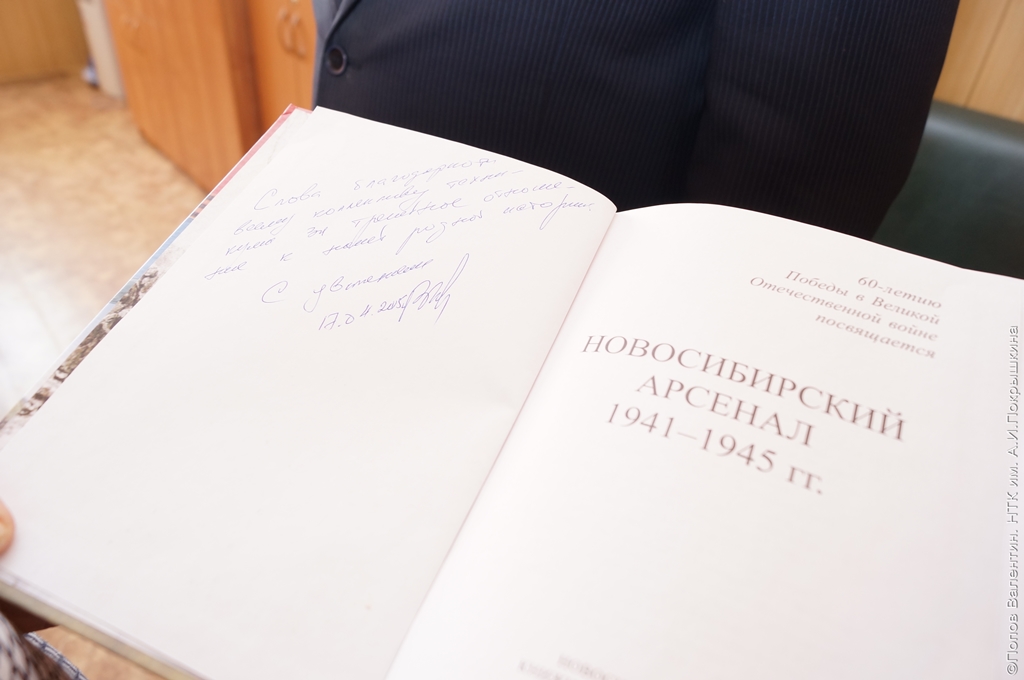 Слова благодарности
всему коллективу техни-
кума за трепетное отноше-
ние к нашей родной истории
С уважением
17.04.2015
60-летию
Победы в Великой
Отечественной войне
посвящается
НОВОСИБИРСКИЙ
АРСЕНАЛ
1941–1945 гг.
©Попов Валентин. НТК им. А.И.Покрышкина